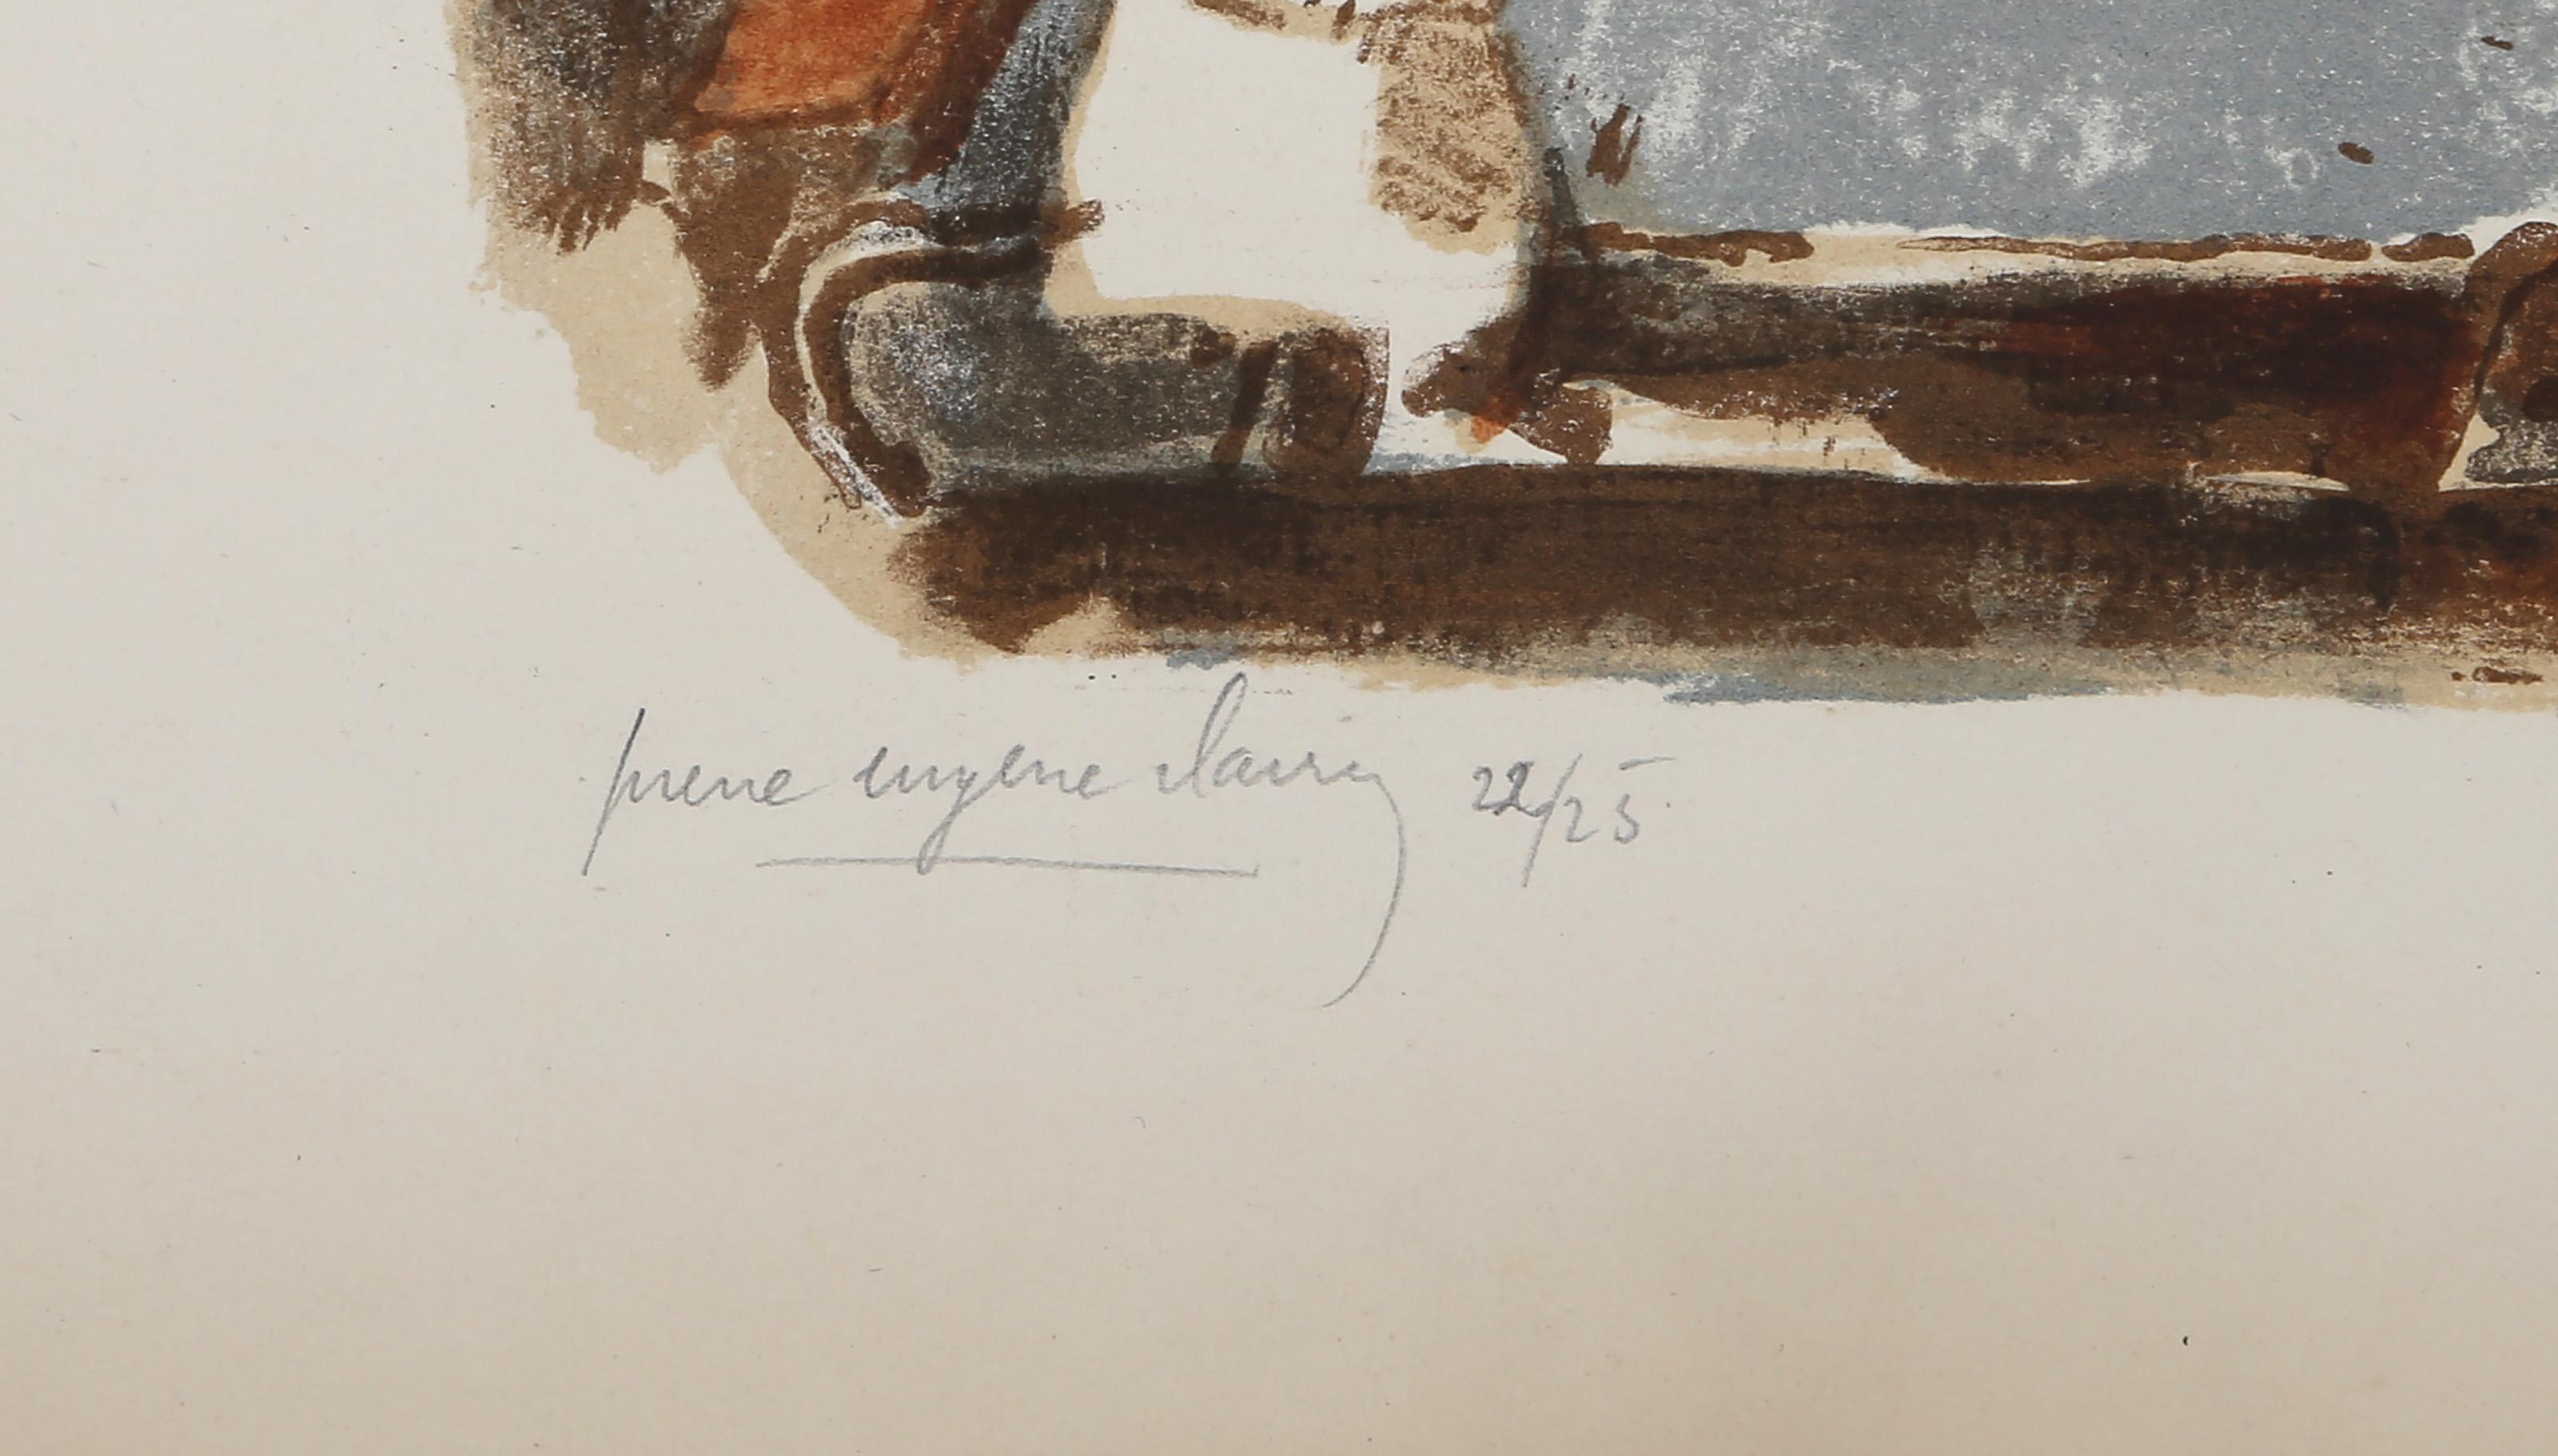 pierre eugène clairin 22/25